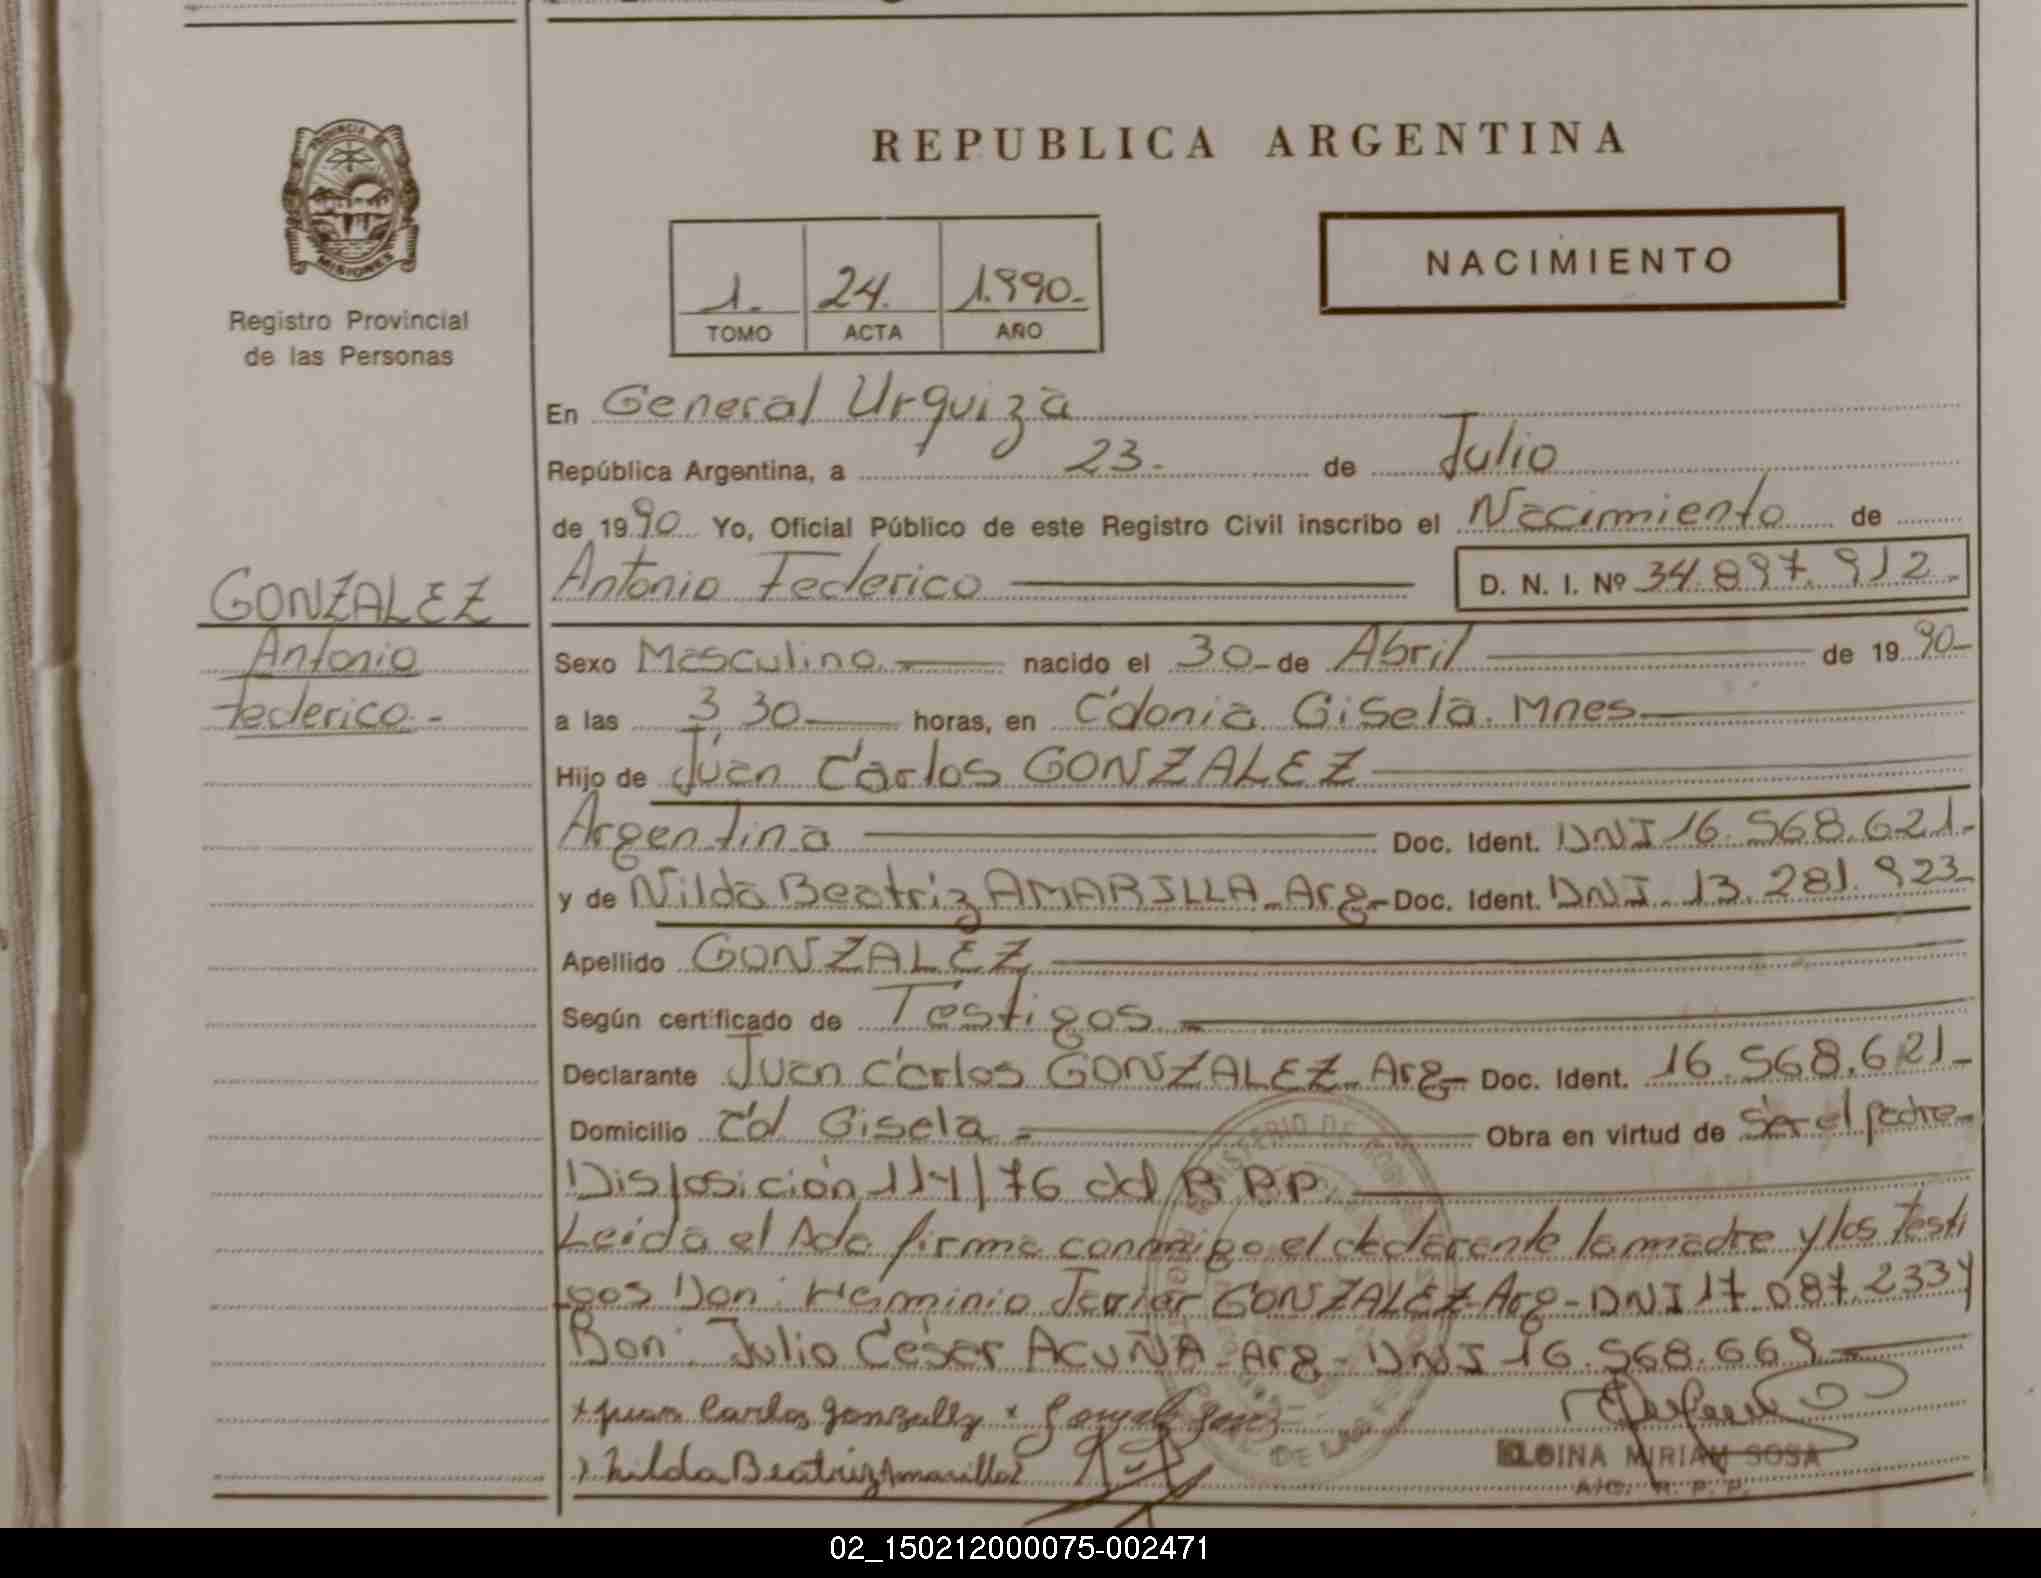 PROVINCIA DE
MISIONES
Registro Provincial
de las Personas
GONZALEZ
Antonio
Federico.-
REPUBLICA ARGENTINA
1.- 24. 1.990.-
TOMO ACTA AÑO
NACIMIENTO
En General Urquiza
República Argentina, a 23.- de Julio
de 1990 Yo, Oficial Público de este Registro Civil inscribo el Nacimiento de
Antonio Federico D. N. I. Nº 34.897.912.-
Sexo Masculino.- nacido el 30- de Abril de 1990-
a las 3,30 horas, en Colonia Gisela. Mnes
Hijo de Juan Carlos GONZALEZ
Argentina Doc. Ident. DNI 16.568.621.-
y de Nilda Beatriz AMARILLA-Arg- Doc. Ident. DNI. 13.281.923-
Apellido GONZALEZ
Según certificado de Testigos.-
Declarante Juan Carlos GONZALEZ-Arg- Doc. Ident. 16.568.621-
Domicilio Col Gisela.- Obra en virtud de Ser el padre-
Disposición 114/76 del R.P.P.
Leida el Acta firma conmigo el declarante la madre y los testi
gos Don: Herminio Javier GONZALEZ-Arg-DNI 17.087.233 y
Don: Julio César ACUÑA-Arg-DNI 16.568.669
x Juan Carlos Gonzalez x
Nilda Beatriz Amarilla
ELOINA MIRIAM SOSA
A/C. R. P. P.
02_150212000075-002471